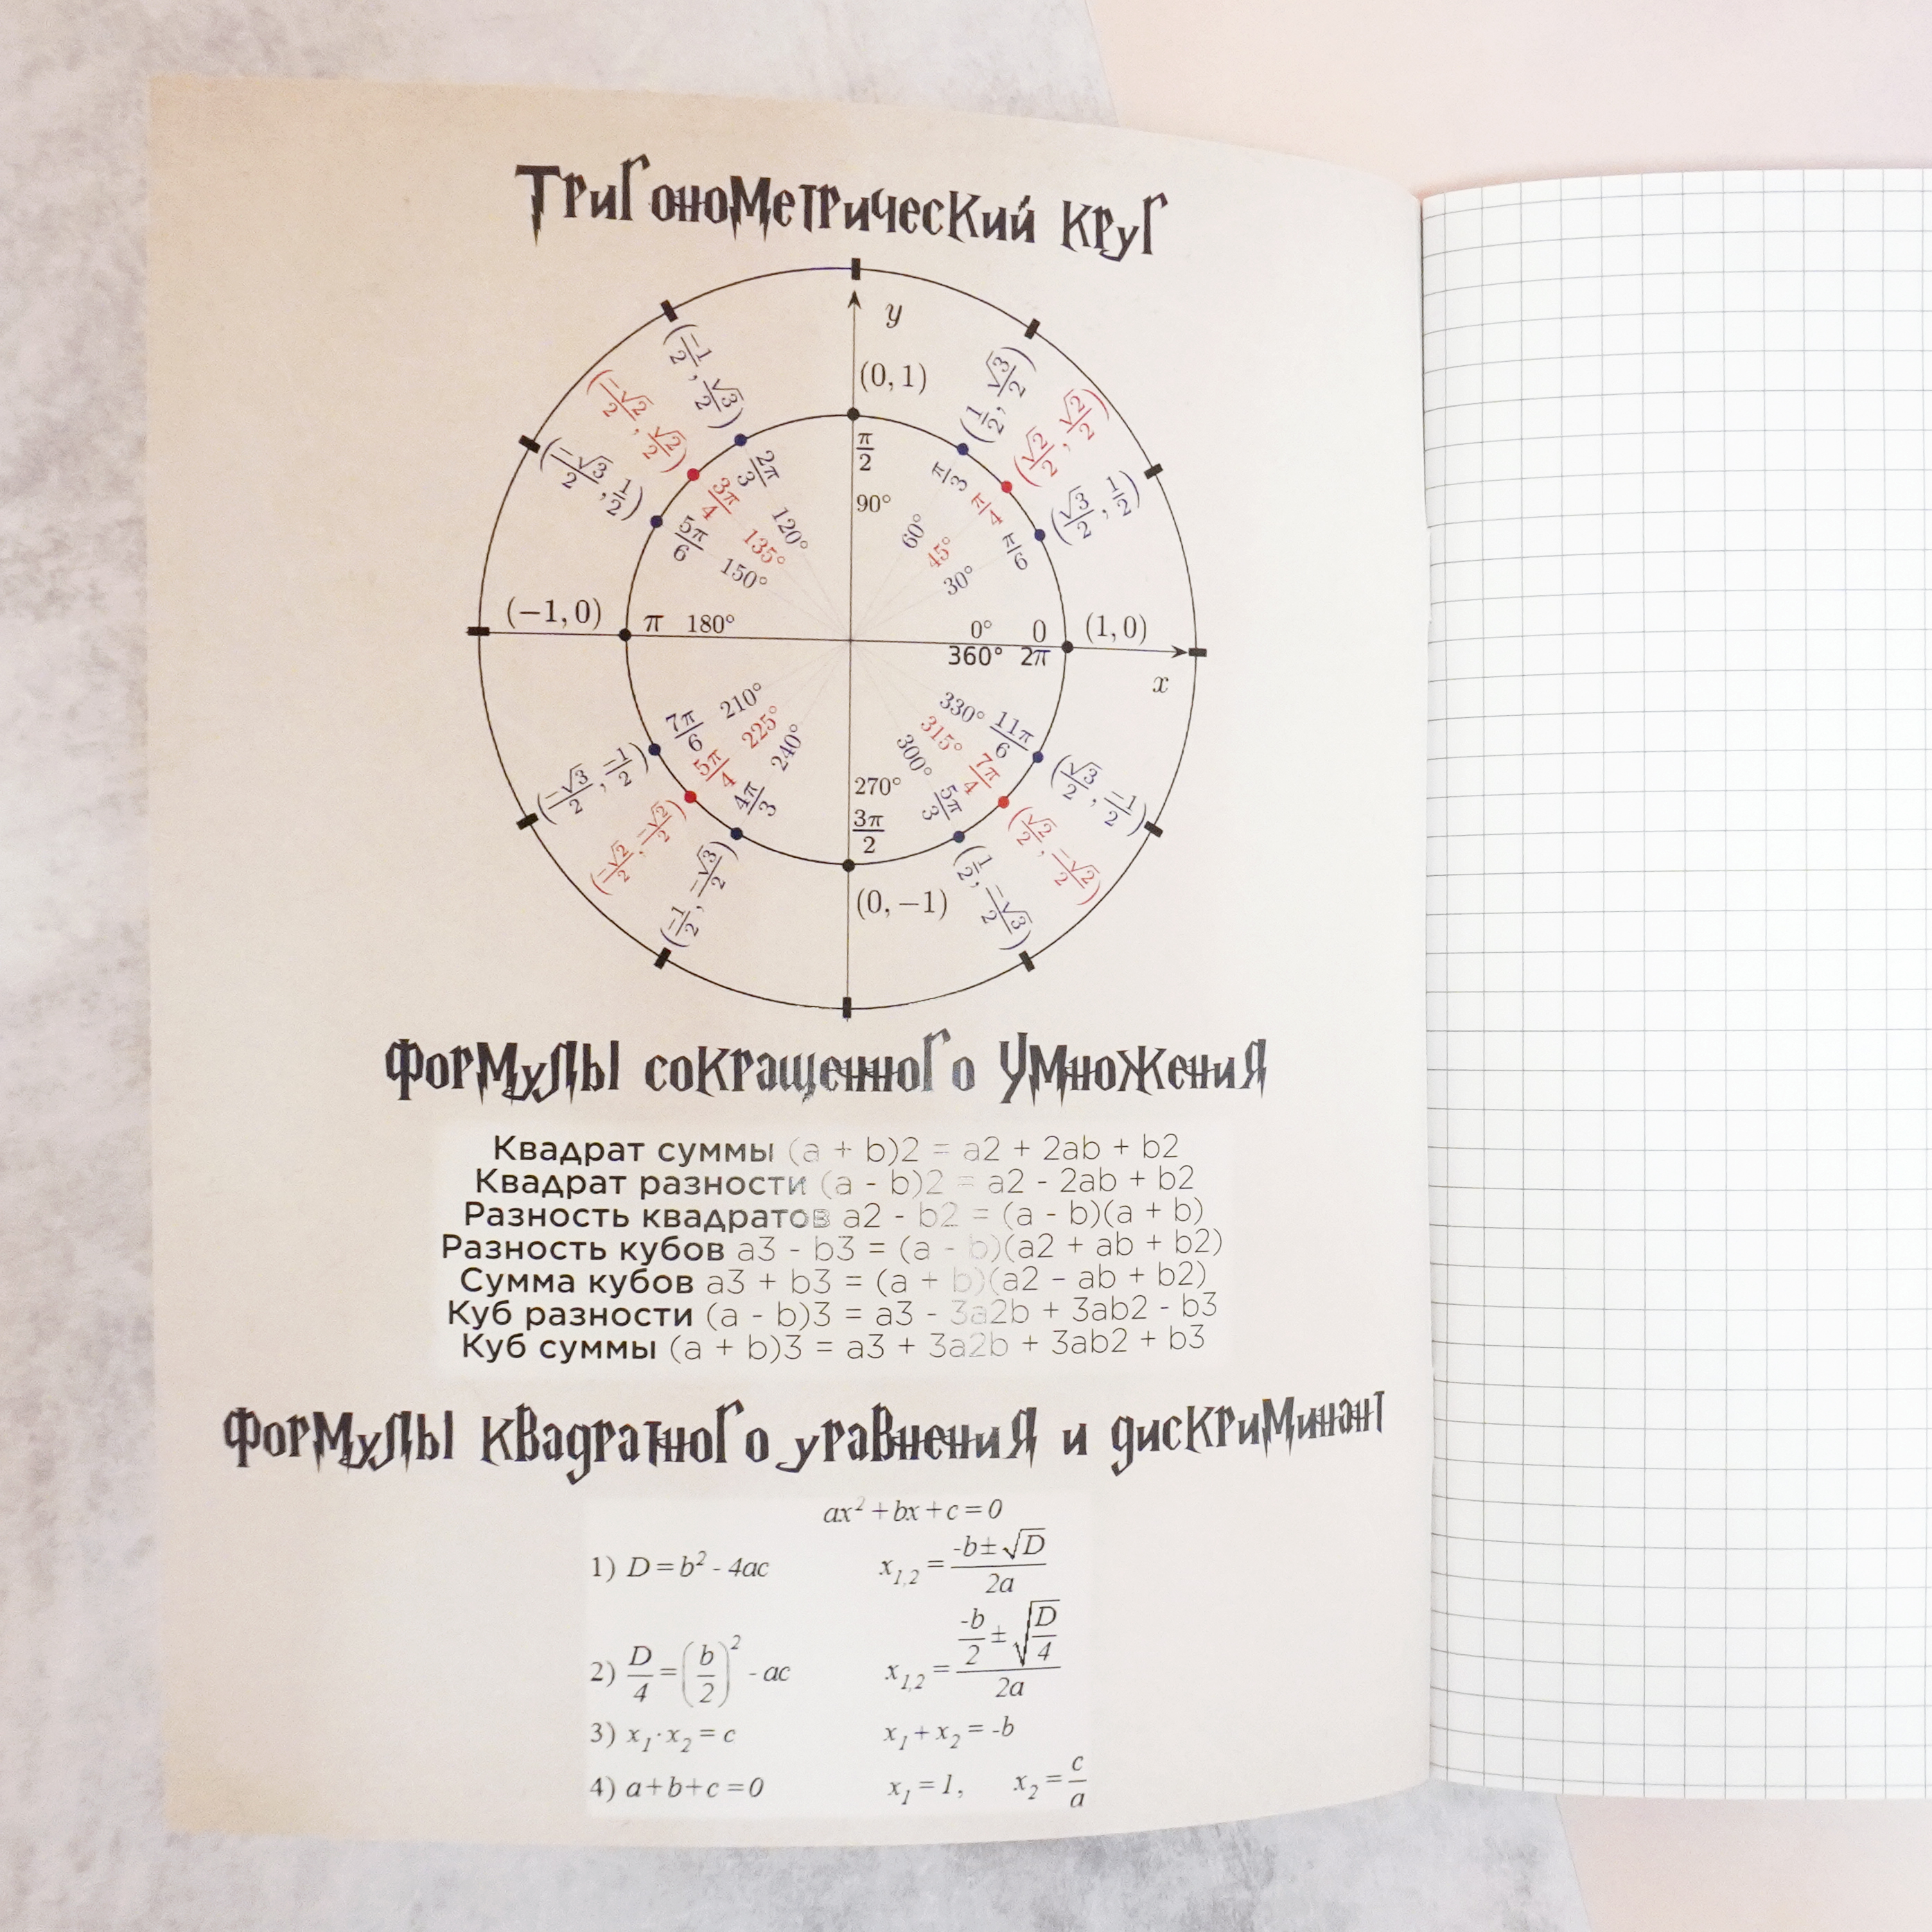 Тригонометрический круг
y
(0, 1)
(-1/2, √3/2)
(-√2/2, √2/2)
(-√3/2, 1/2)
(1/2, √3/2)
(√2/2, √2/2)
(√3/2, 1/2)
π/2
90°
2π/3 120°
3π/4 135°
5π/6 150°
π/3 60°
π/4 45°
π/6 30°
(−1, 0) π 180° 0° 0 (1, 0)
360° 2π
x
7π/6 210°
5π/4 225°
4π/3 240°
330° 11π/6
315° 7π/4
300° 5π/3
270°
3π/2
(-√3/2, -1/2)
(-√2/2, -√2/2)
(-1/2, -√3/2)
(√3/2, -1/2)
(√2/2, -√2/2)
(1/2, -√3/2)
(0, −1)
Формулы сокращенного умножения
Квадрат суммы (a + b)2 = a2 + 2ab + b2
Квадрат разности (a - b)2 = a2 - 2ab + b2
Разность квадратов a2 - b2 = (a - b)(a + b)
Разность кубов a3 - b3 = (a - b)(a2 + ab + b2)
Сумма кубов a3 + b3 = (a + b)(a2 - ab + b2)
Куб разности (a - b)3 = a3 - 3a2b + 3ab2 - b3
Куб суммы (a + b)3 = a3 + 3a2b + 3ab2 + b3
Формулы квадратного уравнения и дискриминант
ax² + bx + c = 0
1) D = b² - 4ac x₁,₂ = (-b ± √D)/2a
2) D/4 = (b/2)² - ac x₁,₂ = (-b/2 ± √(D/4))/2a
3) x₁·x₂ = c x₁ + x₂ = -b
4) a + b + c = 0 x₁ = 1, x₂ = c/a